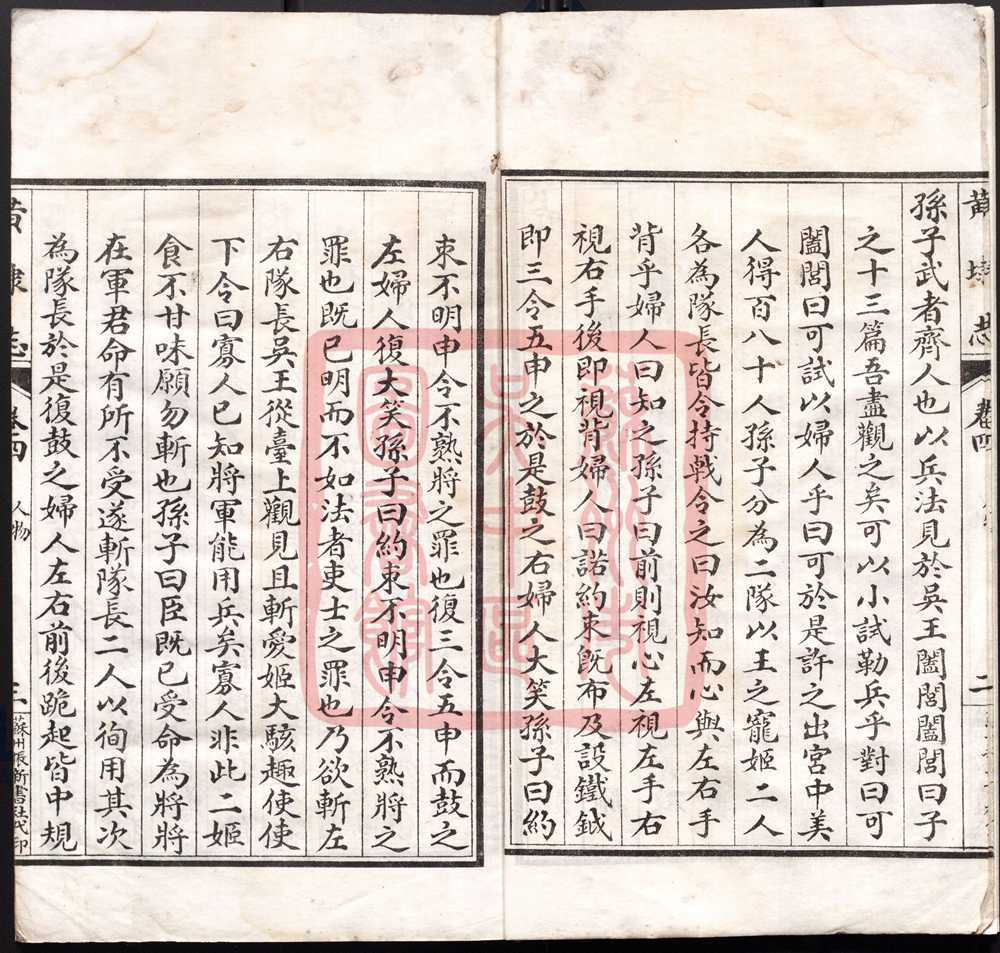 黃埭志
卷四
二
孫子武者齊人也以兵法見於吳王闔閭闔閭曰子
之十三篇吾盡觀之矣可以小試勒兵乎對曰可
闔閭曰可試以婦人乎曰可於是許之出宮中美
人得百八十人孫子分為二隊以王之寵姬二人
各為隊長皆令持戟令之曰汝知而心與左右手
背乎婦人曰知之孫子曰前則視心左視左手右
視右手後即視背婦人曰諾約束既布及設鐵鉞
即三令五申之於是鼓之右婦人大笑孫子曰約
束不明申令不熟將之罪也復三令五申而鼓之
左婦人復大笑孫子曰約束不明申令不熟將之
罪也既已明而不如法者吏士之罪也乃欲斬左
右隊長吳王從臺上觀見且斬愛姬大駭趣使使
下令曰寡人已知將軍能用兵矣寡人非此二姬
食不甘味願勿斬也孫子曰臣既已受命為將將
在軍君命有所不受遂斬隊長二人以徇用其次
為隊長於是復鼓之婦人左右前後跪起皆中規
黃埭志
卷四
人物
三
蘇州振新書社代印
蘇州市
吳中區
圖書館